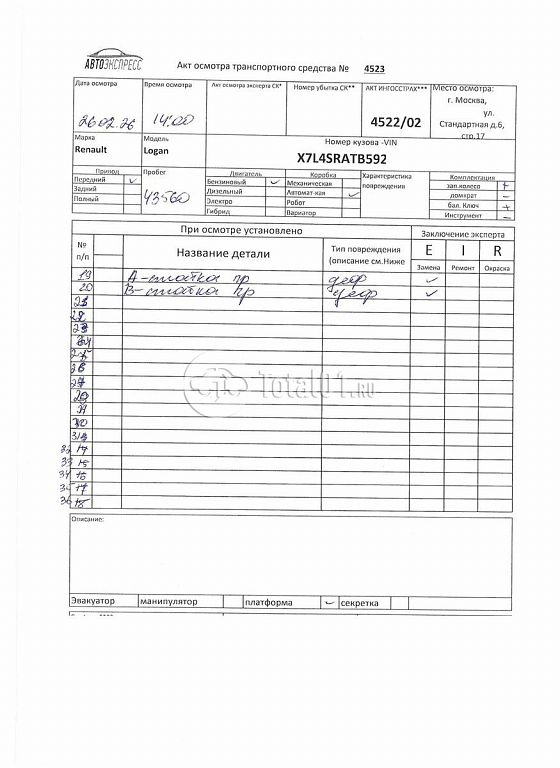 АВТОЭКСПРЕСС
Акт осмотра транспортного средства № 4523
Дата осмотра Время осмотра Акт осмотра эксперта СК* Номер убытка СК** АКТ ИНГОССТРАХ*** Место осмотра:
г. Москва,
ул.
Стандартная д.6,
стр.17
26.02.26 14:00 4522/02
Марка Модель Номер кузова -VIN
Renault Logan X7L4SRATB592
Привод Пробег Двигатель Коробка Характеристика повреждения Комплектация
Передний ✓ 43560 Бензиновый ✓ Механическая зап.колесо +
Задний Дизельный Автомат-кая ✓ домкрат –
Полный Электро Робот бал. Ключ +
Гибрид Вариатор Инструмент –
При осмотре установлено Заключение эксперта
№ п/п Название детали Тип повреждения (описание см.Ниже E I R
Замена Ремонт Окраска
19 А-стойка пр деф ✓
20 В-стойка пр деф ✓
Total01.RU
32 14
33 15
34 16
35 17
36 18
Описание:
Эвакуатор манипулятор платформа ✓ секретка